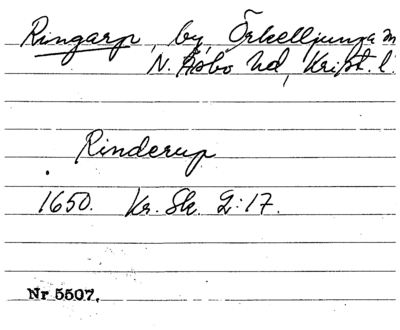 Ringarp, by, Örkelljunga
N. Åsbo hd, Krist. l.
Rinderup
1650. Kr. Sk. 2:17.
Nr 5507.